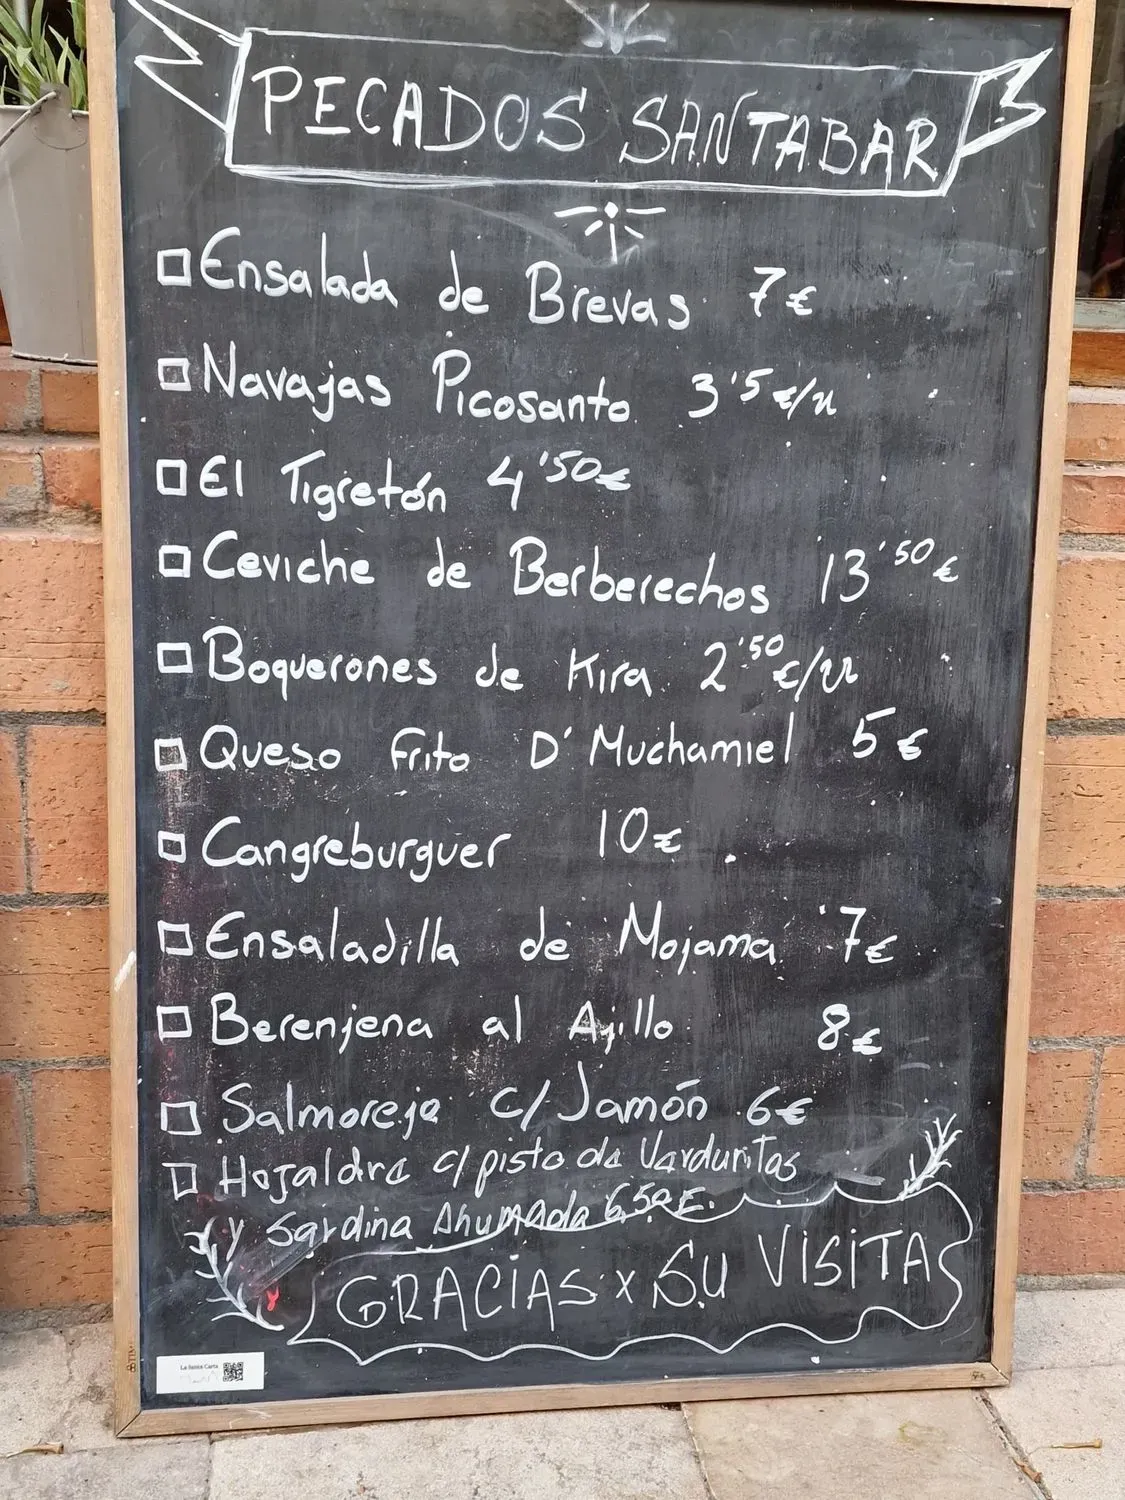 PECADOS SANTABAR
Ensalada de Brevas 7€
Navajas Picosanto 3'5€/u
El Tigretón 4'50€
Ceviche de Berberechos 13'50€
Boquerones de Kira 2'50€/u
Queso Frito D'Muchamiel 5€
Cangreburguer 10€
Ensaladilla de Mojama 7€
Berenjena al Ajillo 8€
Salmorejo c/Jamón 6€
Hojaldre c/ pisto de Verduritas
y Sardina Ahumada 6,50€.
GRACIAS x SU VISITA
La Santa Carta